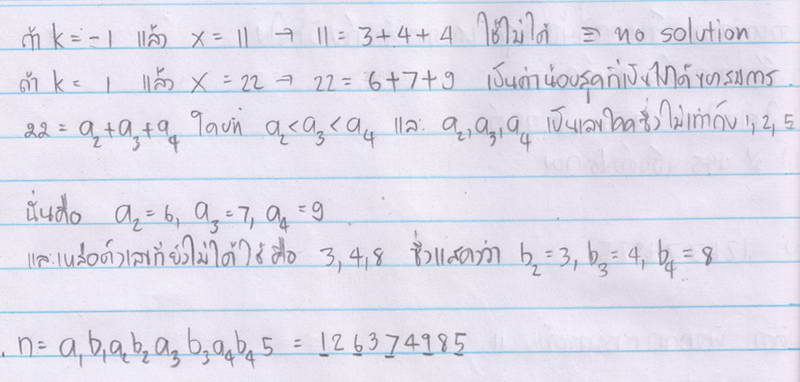 ถ้า k = -1 แล้ว x = 11 → 11 = 3+4+4 ใช้ไม่ได้ ≡ no solution
ถ้า k = 1 แล้ว x = 22 → 22 = 6+7+9 เป็นค่าน้อยสุดที่เป็นไปได้ของสมการ
22 = a₂+a₃+a₄ โดยที่ a₂<a₃<a₄ และ a₂,a₃,a₄ เป็นเลขโดดซึ่งไม่เท่ากับ 1, 2, 5
นั่นคือ a₂ = 6, a₃ = 7, a₄ = 9
และเหลือตัวเลขที่ยังไม่ได้ใช้คือ 3, 4, 8 ซึ่งแสดงว่า b₂ = 3, b₃ = 4, b₄ = 8
. n = a₁b₁a₂b₂a₃b₃a₄b₄5 = 126374985